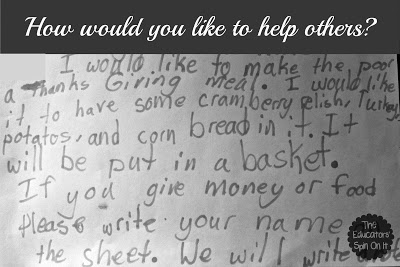 How would you like to help others?
I would like to make the poor
a Thanks Giving meal. I would like
it to have some cramberry relish, Turkey,
potatos, and corn bread in it. It
will be put in a basket.
If you give money or food
Please write your name
the sheet. We will write
The
Educators'
Spin On It